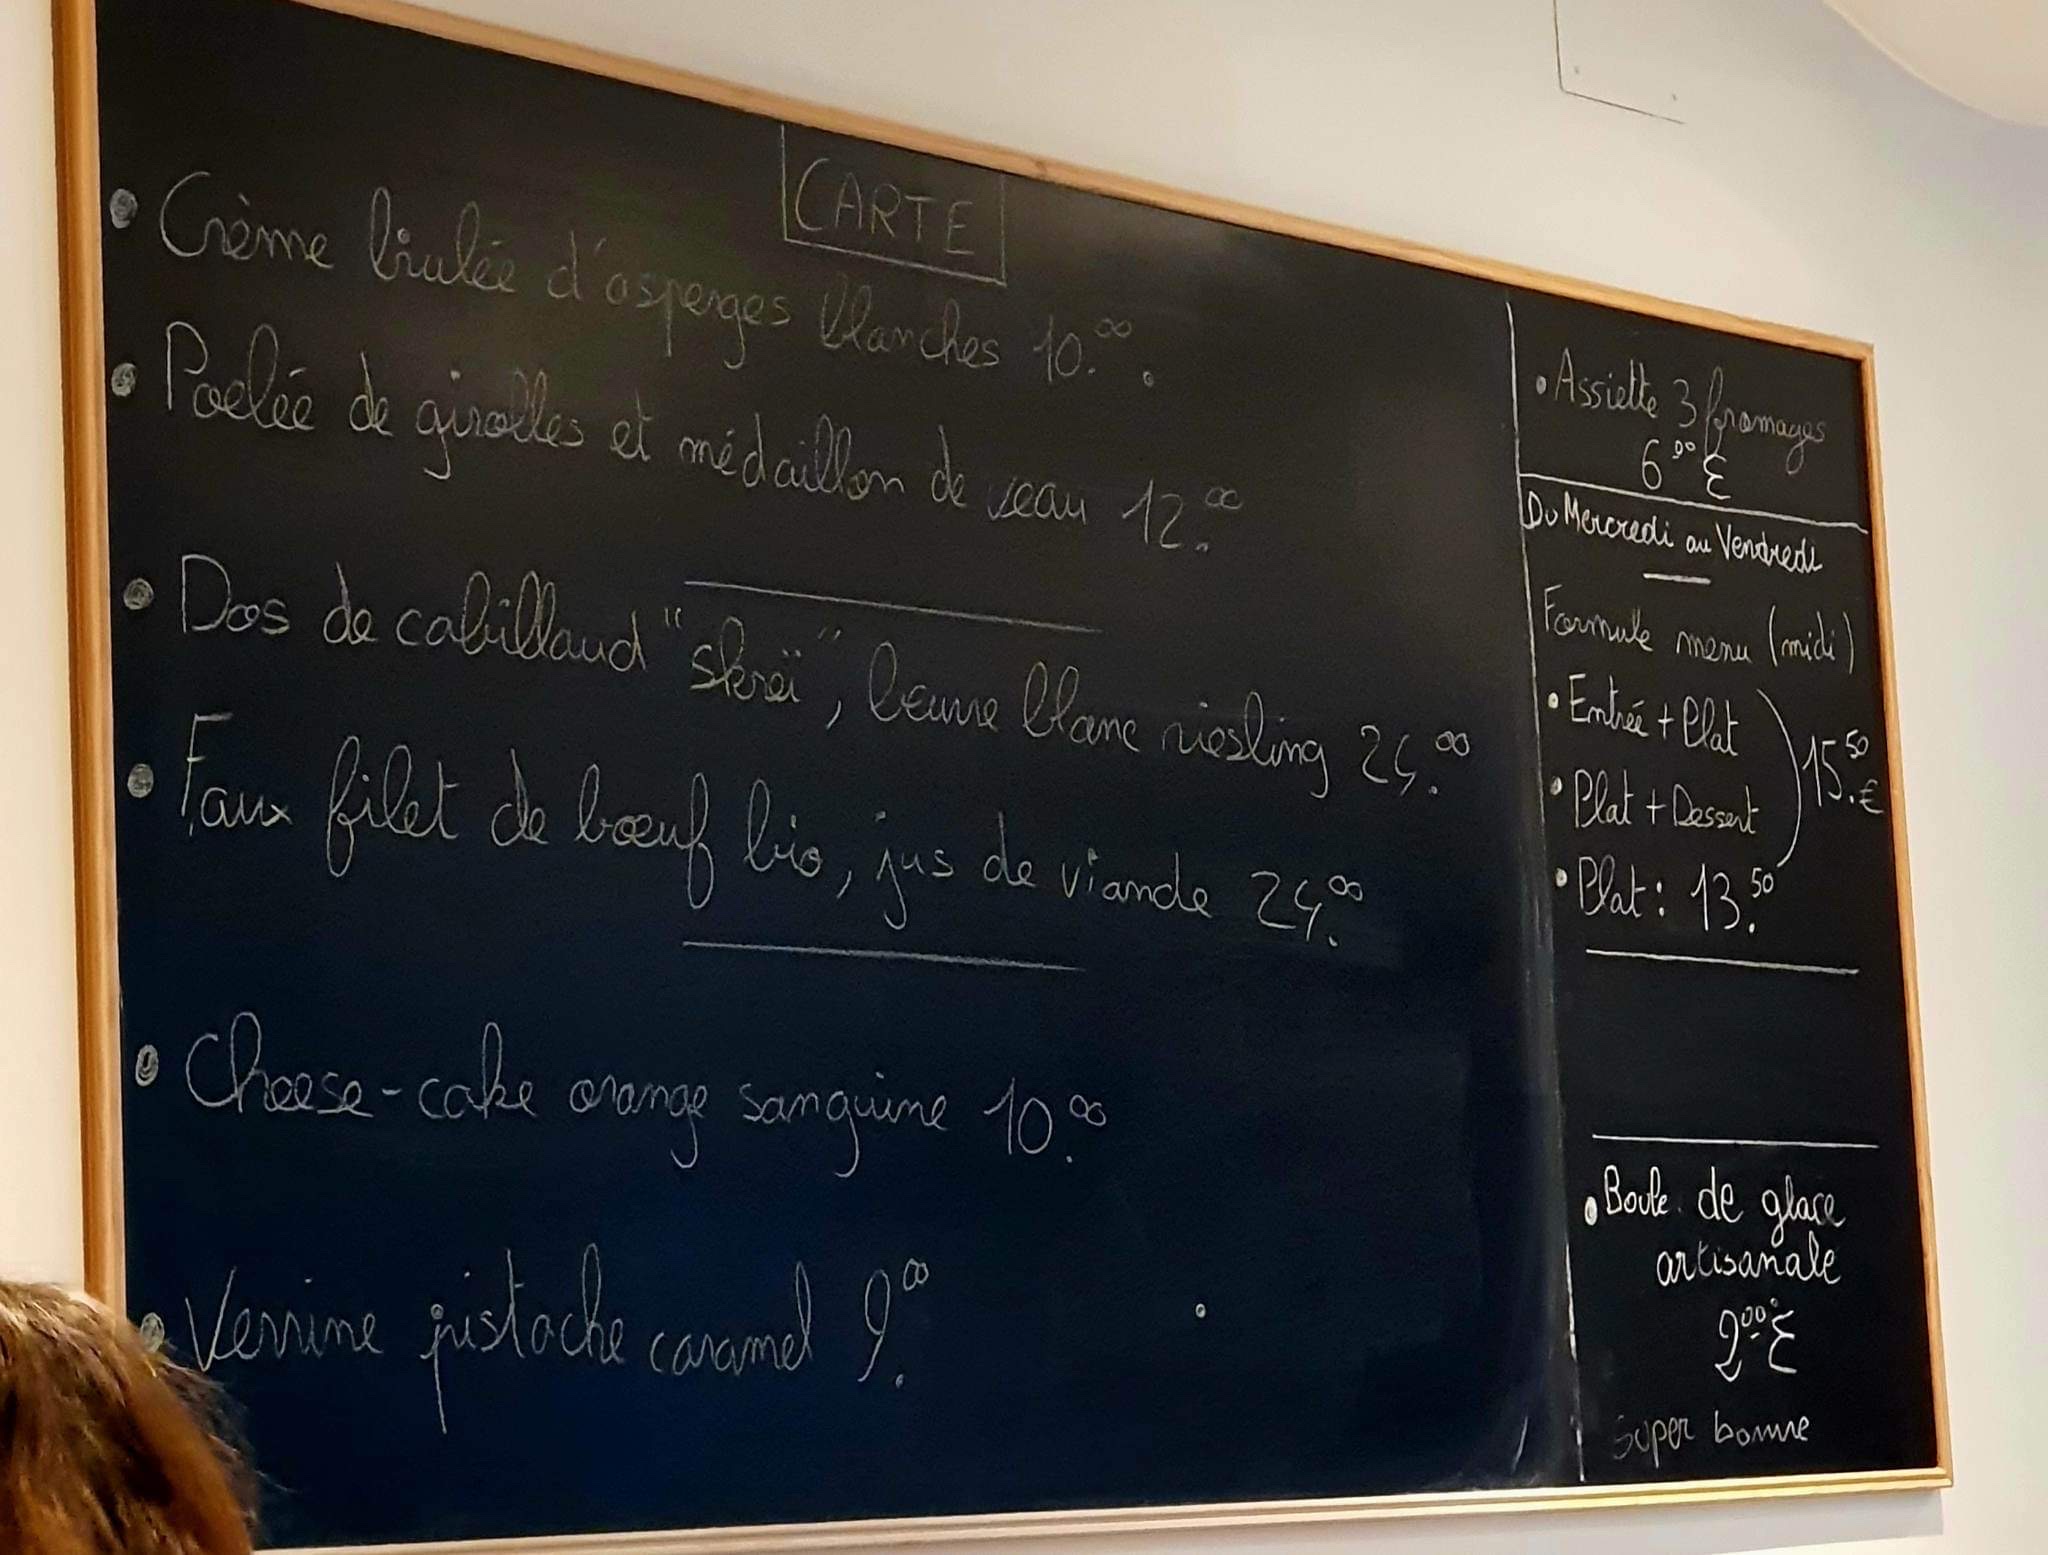 CARTE
• Crème brulée d'asperges blanches 10.00.
• Poelée de girolles et médaillon de veau 12.00
• Dos de cabillaud "skreï", beurre blanc riesling 24.00
• Faux filet de bœuf bio, jus de viande 24.00
• Cheese-cake orange sanguine 10.00
• Verrine pistache caramel 9.00
• Assiette 3 fromages
6.00 €
Du Mercredi au Vendredi
Formule menu (midi)
• Entrée + Plat
15.50 €
• Plat + Dessert
• Plat : 13.50
• Boule de glace
artisanale
2.00 €
Super bonne